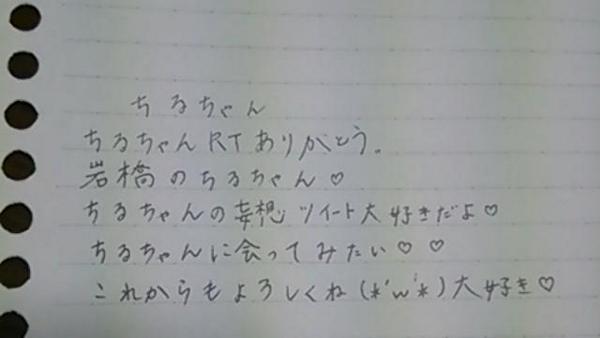 ちるちゃん
ちるちゃんRTありがとう。
岩橋のちるちゃん♡
ちるちゃんの妄想ツイート大好きだよ♡
ちるちゃんに会ってみたい♡♡
これからもよろしくね(*'w'*)大好き♡